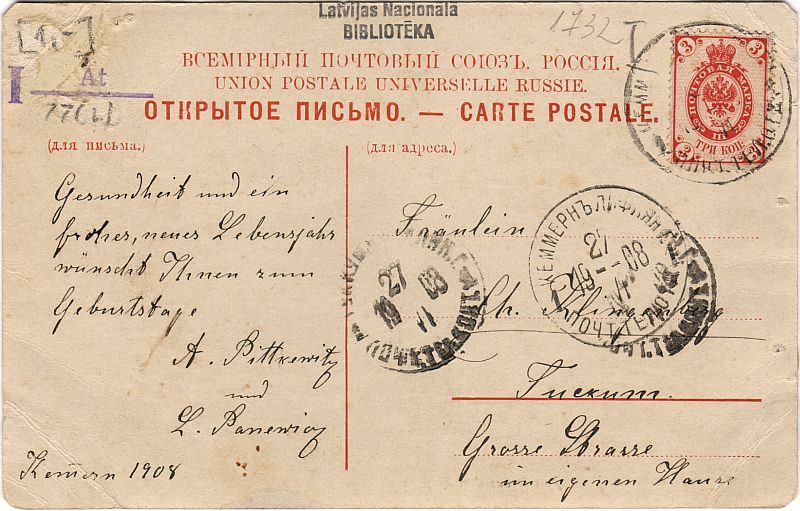 Latvijas Nacionala
BIBLIOTĒKA
1732
I At
77(1)
ВСЕМІРНЫЙ ПОЧТОВЫЙ СОЮЗЪ. РОССІЯ.
UNION POSTALE UNIVERSELLE RUSSIE.
ОТКРЫТОЕ ПИСЬМО. — CARTE POSTALE.
(для письма.)
(для адреса.)
3 3
ПОЧТОВАЯ МАРКА
ТРИ КОП.
3 3
Gesundheit und ein
frohes, neues Lebensjahr
wünscht Ihnen zum
Geburtstage
A. Pittkewitz
und
L. Panewicz
Kemern 1908
Fräulein
Ch. Klingenberg
Tuckum.
Grosse Strasse
im eigenen Hause
КЕММЕРНЪ ЛИФЛЯНД.
27
19 08
VI
ПОЧТ. ТЕЛ.
27
19 08
VI